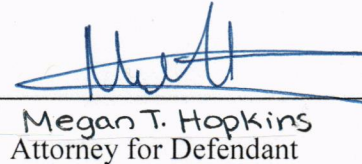 Megan T. Hopkins
Attorney for Defendant